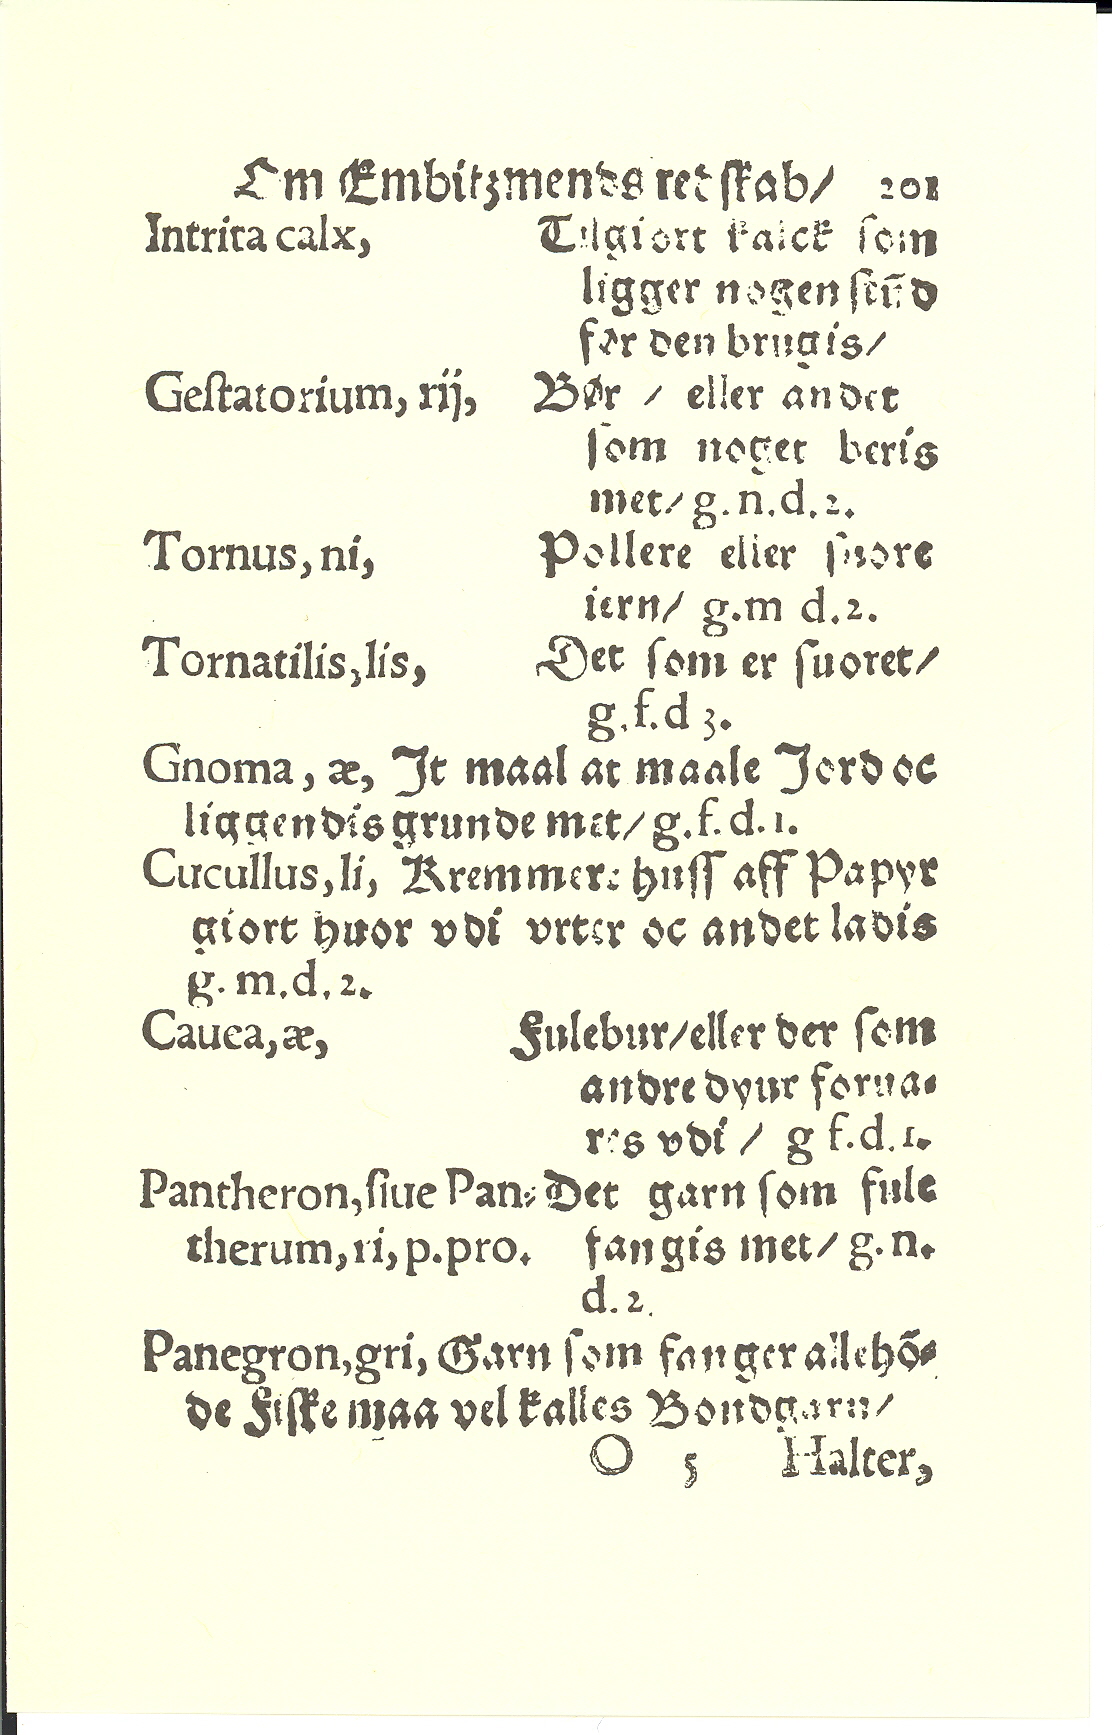 Om Embitzmends retskab/ 201
Intrita calx, Tilgiort kalck som
ligger nogen stūd
før den brugis/
Gestatorium, rij, Bør / eller andet
som noget beris
met/ g.n.d.2.
Tornus, ni, Pollere eller suore
iern/ g.m d.2.
Tornatilis, lis, Det som er suoret/
g.f.d 3.
Gnoma, æ, It maal at maale Jord oc
liggendis grunde met/ g.f.d.1.
Cucullus, li, Kremmer: huss aff Papyr
giort huor vdi vrter oc andet ladis
g.m.d.2.
Cauea, æ, Fulebur/eller der som
andre dyur forua-
res vdi / g f.d.1.
Pantheron, siue Pan- Det garn som fule
therum, ri, p.pro. fangis met/ g.n.
d.2.
Panegron, gri, Garn som fanger allehō-
de Fiske maa vel kalles Bondgarn/
O 5 Halter,